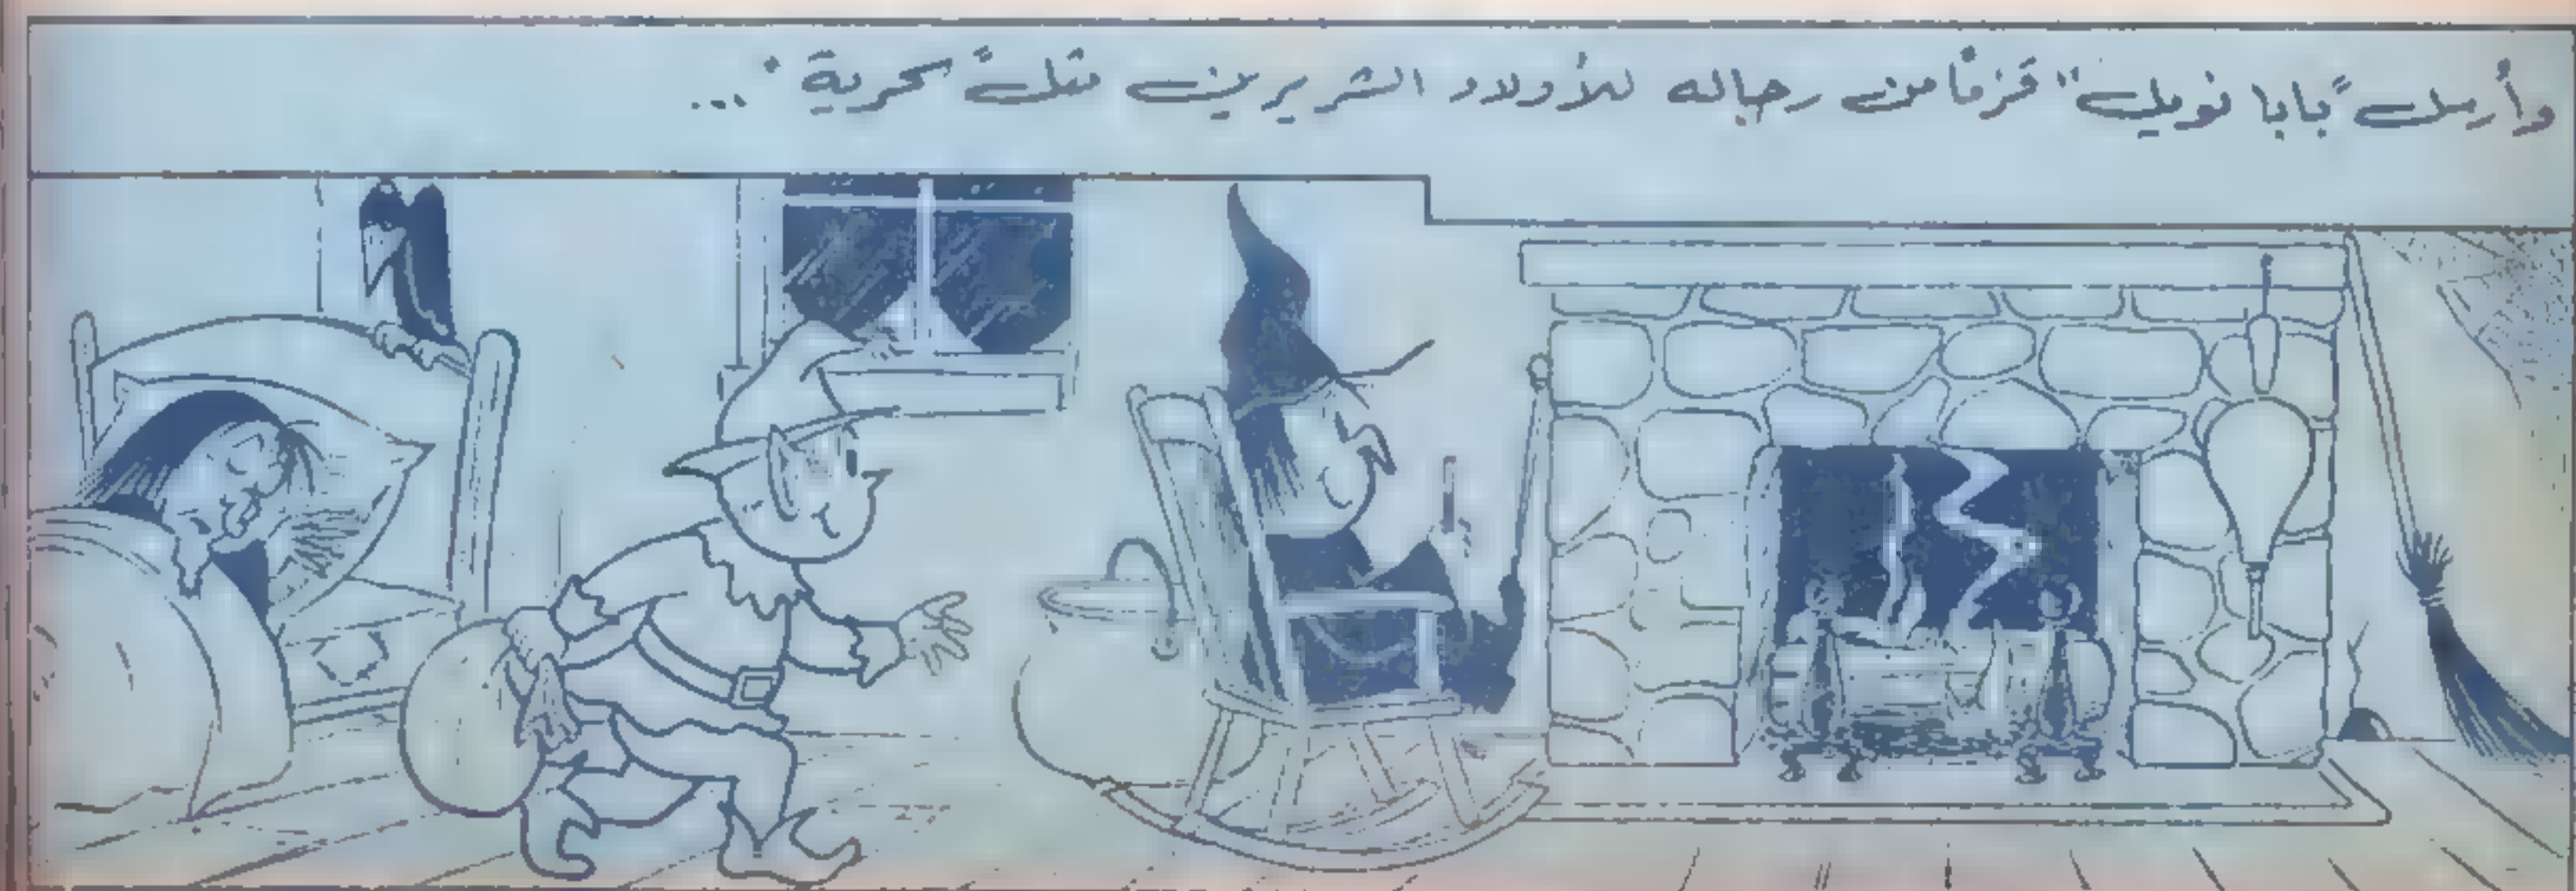 وأرسل "بابا نويل" قزمًا من رجاله للأولاد الشريرين مثل "سحرية"...